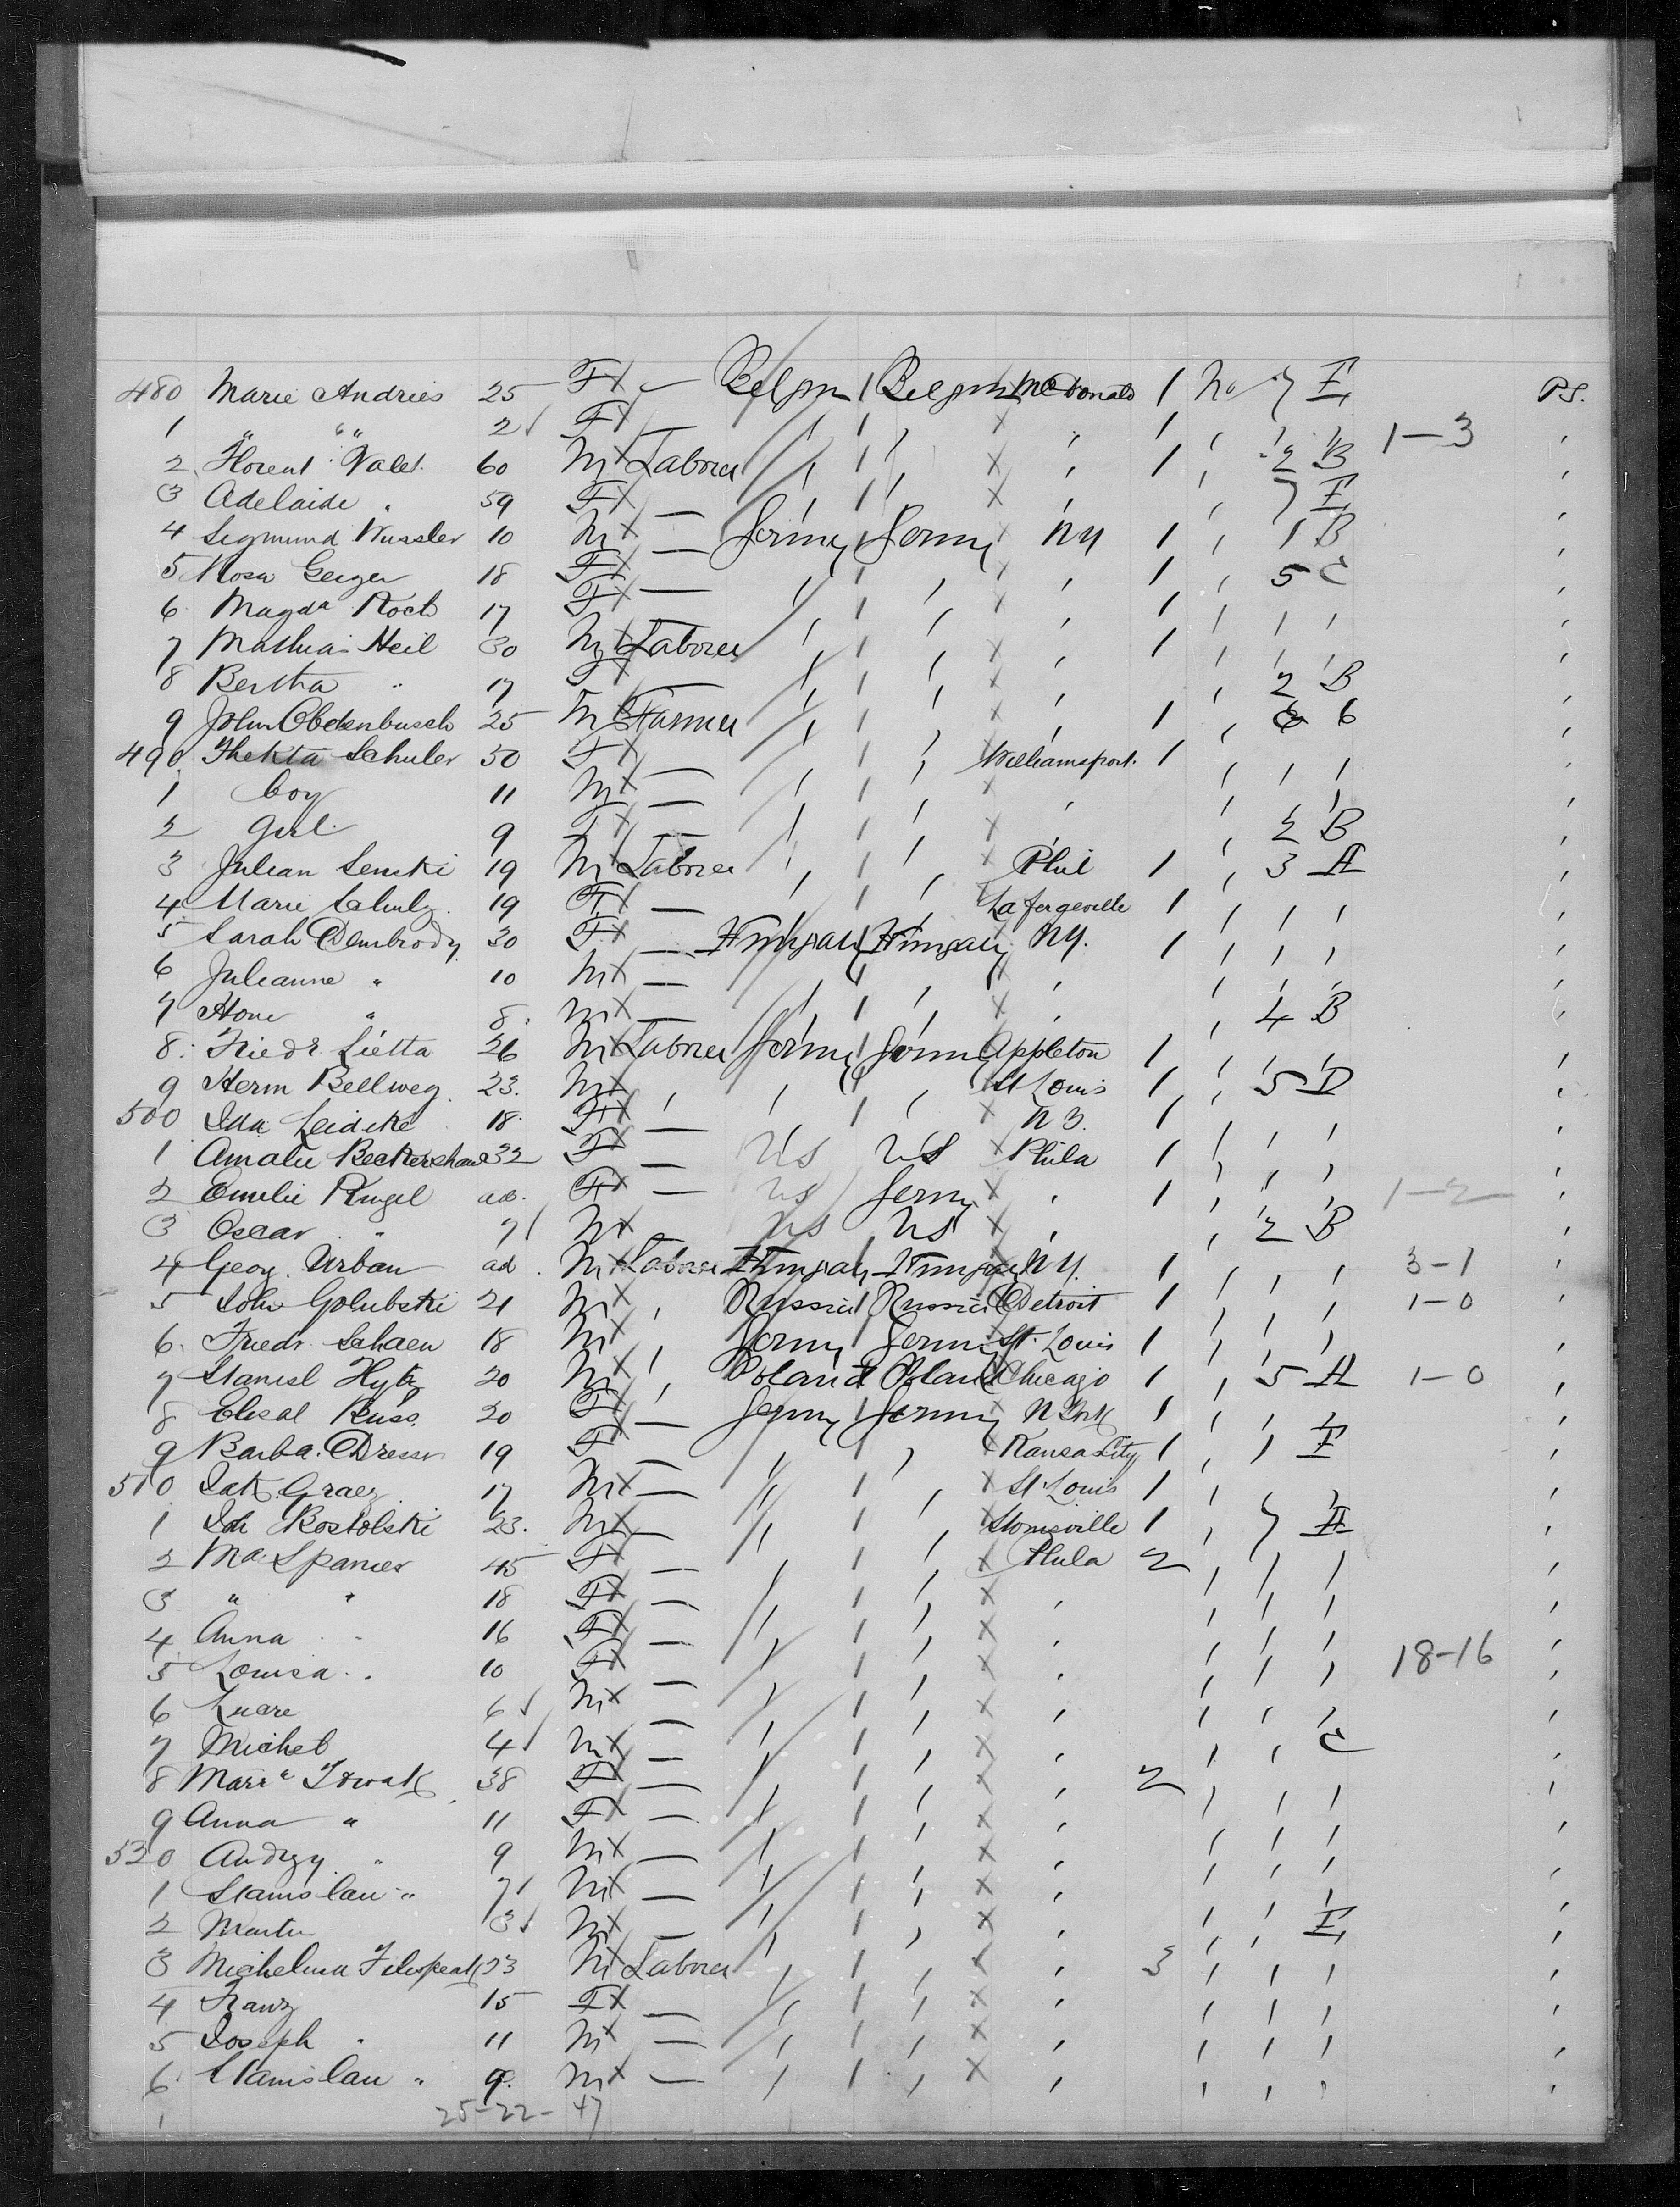 480 Marie Andries 25 F — Belgm Belgm McDonald 1 No 7 E P.S.
1 " " 2 F — 1-3
2 Florent Valet 60 M Laborer 1 2 B
3 Adelaide " 59 F — 7 E
4 Sigmund Wussler 10 M — Germy Germy NY 1 1 B
5 Rosa Geiger 18 F — 1 5 C
6 Magda Koch 17 F 1
7 Mathias Heil 30 M Laborer 1
8 Bertha " 17 F — 2 B
9 John Obdenbusch 25 M Farmer 1 6
490 Thekta Schuler 50 F — Williamsport 1
1 boy 11 M —
2 Girl 9 F — 2 B
3 Julian Senski 19 M Laborer Phil 1 3 A
4 Marie Schulz 19 F — Lafargeville 1
5 Sarah Dembrody 30 F — Hungary Hungary NY. 1
6 Julianne " 10 M —
7 " 8 M — 4 B
8 Friedr. Lietta 26 M Laborer Germy Germy Appleton 1
9 Herm Bellweg 23 M St Louis 1 5 D
500 Ida Leidcke 18 F — 1
1 Amalie 32 F — US US Phila 1
2 Emilie Ringel ad. F — US Germy 1 1-2
3 Oscar " 7 M US US 2 B
4 Georg. Urban ad M Laborer Hungary Hungary NY. 1 3-1
5 Joh Golubski 21 M Russia Russia Detroit 1 1-0
6 Friedr. Schaen 18 M Germy Germy St. Louis 1
7 Stanisl Hytz 20 M Poland Poland Chicago 1 5 A 1-0
8 Elisal Russ 20 F — Germy Germy N York 1
9 Barba. Dressr 19 F — Kansas City 1 E
510 Jak. Graez 17 M — St Louis 1
1 Joh Bostolski 23 M — 1 7 A
2 Ma Spanier 45 F — Phila 2
3 " " 18 F —
4 Anna 16 F —
5 Louisa 10 F 18-16
6 6 M —
7 Michel 4 M — C
8 38 F — 2
9 Anna " 11 F —
520 Andrzy " 9 M —
1 Stanislau " 7 M —
2 Martin 3 M — E
3 Michelina 23 M Laborer 3
4 Franz 15 F —
5 Joseph " 11 M —
6 Stanislau " 9 M —
1 25-22-47